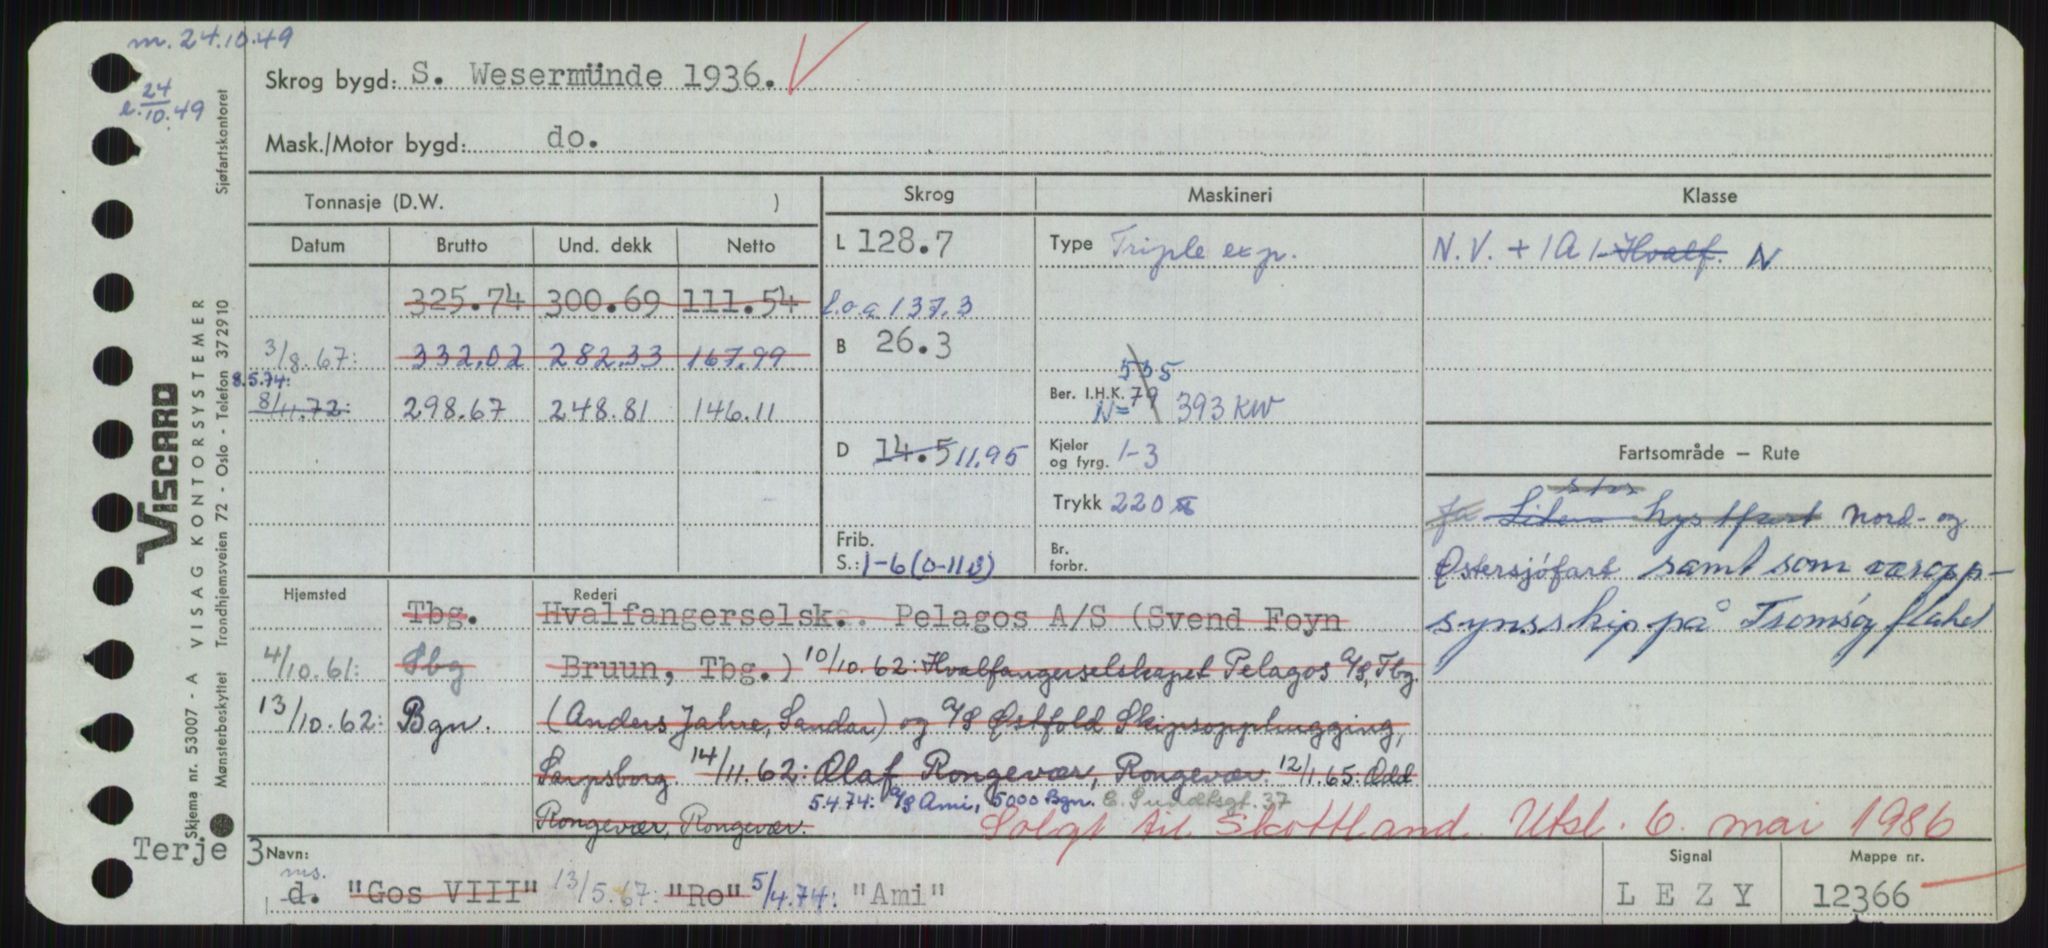 m. 24.10.49
e. 24/10.49
Skrog bygd: S. Wesermünde 1936.
Mask./Motor bygd: do.
Tonnasje (D.W. )
Skrog
Maskineri
Klasse
Datum Brutto Und. dekk Netto
L 128.7
Type Triple exp.
N.V. + 1A1 Hvalf. N
325.74 300.69 111.54
l.o.a 137.3
3/8.67: 332.02 282.33 167.99
B 26.3
8.5.74:
8/11.72: 298.67 248.81 146.11
535
Ber. I.H.K. 79
N= 393 KW
D 14.5 11.95
Kjeler og fyrg. 1-3
Fartsområde — Rute
Trykk 220
Frib. S.: 1-6 (0-11)
Br. forbr.
stor
Liten kystfart Nord- og
Østersjöfart samt som væropp-
synsskip på Tromsøyflaket
Hjemsted
Rederi
Tbg. Hvalfangerselsk. Pelagos A/S (Svend Foyn
4/10.61: Sbg Bruun, Tbg.) 10/10.62: Hvalfangerselskapet Pelagos A/S, Tbg.
13/10.62: Bgn. (Anders Jahre, Sandar) og A/S Østfold Skipsopphugging,
Sarpsborg. 14/11.62: Olaf Rongevær, Rongevær. 12/1.65: Odd
5.4.74: A/S Ami, 5000 Bgn. E. Sundtsgt. 37
Rongevær, Rongevær.
Solgt til Skottland. Utsl. 6. mai 1986
Terje 3
Navn:
ms.
d. "Gos VIII" 13/5.67: "Ro" 5/4.74: "Ami"
Signal
LEZY
Mappe nr.
12366
VISCARD
VISAG KONTORSYSTEMER
Skjema nr. 53007 - A
Sjøfartskontoret
Trondhjemsveien 72 - Oslo - Telefon 372910
Mønsterbeskyttet